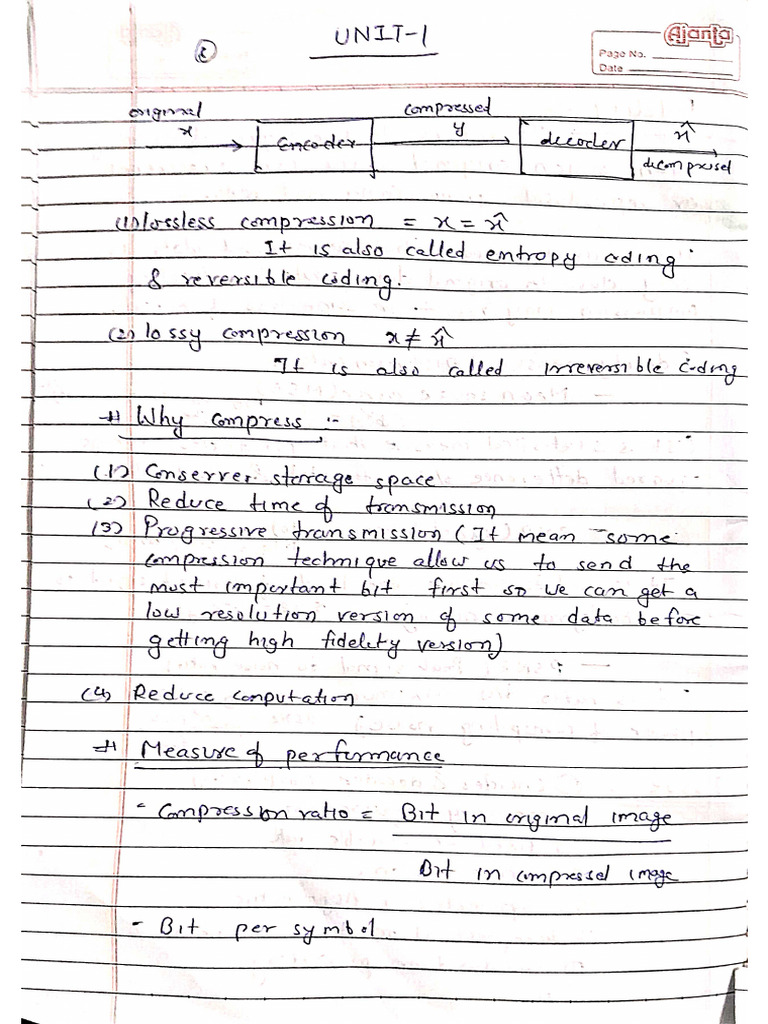 UNIT-1
Ajanta
Page No.
Date
original
x
Encoder
compressed
y
decoder
x̂
decompresed
(1) lossless compression = x = x̂
It is also called entropy coding
& reversible coding.
(2) lossy compression x ≠ x̂
It is also called irreversible coding
# Why compress :-
(1) Conserver storage space
(2) Reduce time of transmission
(3) Progressive transmission (It mean some
compression technique allow us to send the
most important bit first so we can get a
low resolution version of some data before
getting high fidelity version)
(4) Reduce computation
# Measure of performance
- Compression ratio = Bit in original image
Bit in compressed image
- Bit per symbol